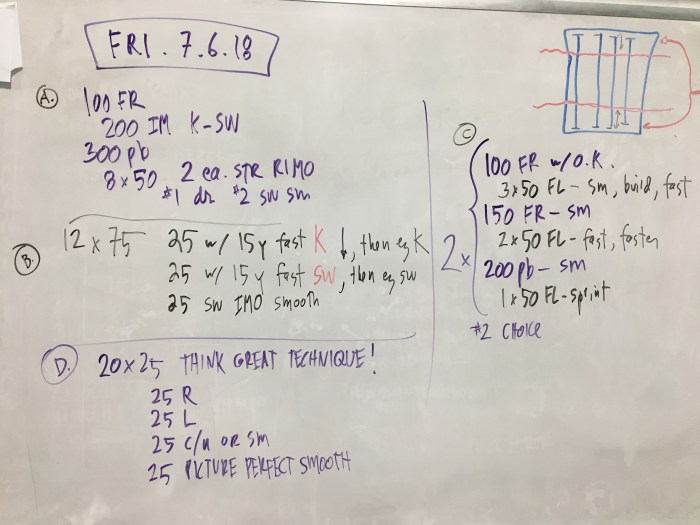 FRI. 7.6.18
A.
100 FR
200 IM K-SW
300 pb
8x50 2 ea. STR RIMO
#1 dr #2 sw sm
B.
12 x 75 25 w/ 15y fast K ↓, then ez K
25 w/ 15y fast SW, then ez sw
25 SW IMO smooth
C
2x
100 FR w/ O.K.
3x50 FL - sm, build, fast
150 FR - sm
2x50 FL - fast, faster
200 pb - sm
1x50 FL - sprint
#2 CHOICE
D. 20x25 THINK GREAT TECHNIQUE!
25 R
25 L
25 c/u OR SM
25 PICTURE PERFECT SMOOTH